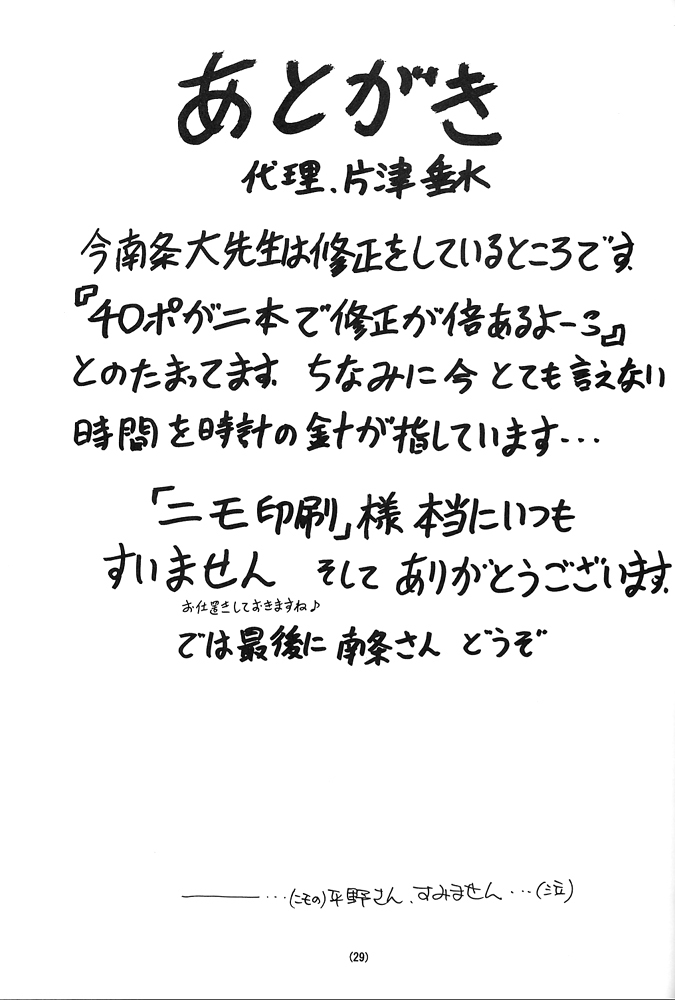 あとがき
代理、片津垂水
今南条大先生は修正をしているところです。
『チ○ポが二本で修正が倍あるよーう』
とのたまってます。ちなみに今とても言えない
時間を時計の針が指しています…
「ニモ印刷」様本当にいつも
すいません そしてありがとうございます。
お仕置きしておきますね♪
では最後に南条さん どうぞ
――…(ニモの)平野さん、すみません…(泣)
(29)